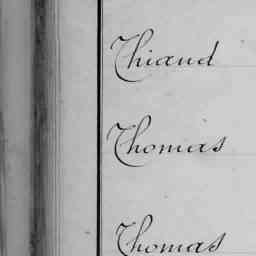 Thiaud
Thomas
Thomas